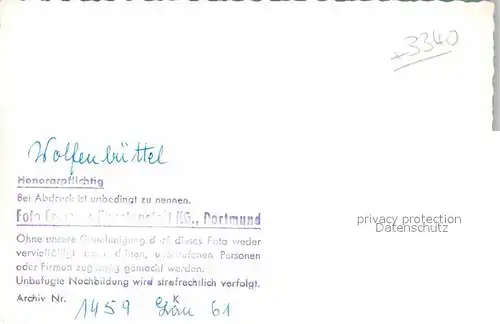 +3340
privacy protection
Datenschutz
Wolfenbüttel
Honorarpflichtig
Bei Abdruck ist unbedingt zu nennen.
Foto KG., Dortmund
Ohne unsere Genehmigung darf dieses Foto weder
vervielfältigt noch dritten, unberufenen Personen
oder Firmen zugängig gemacht werden.
Unbefugte Nachbildung wird strafrechtlich verfolgt.
Archiv Nr. 1459 K 61